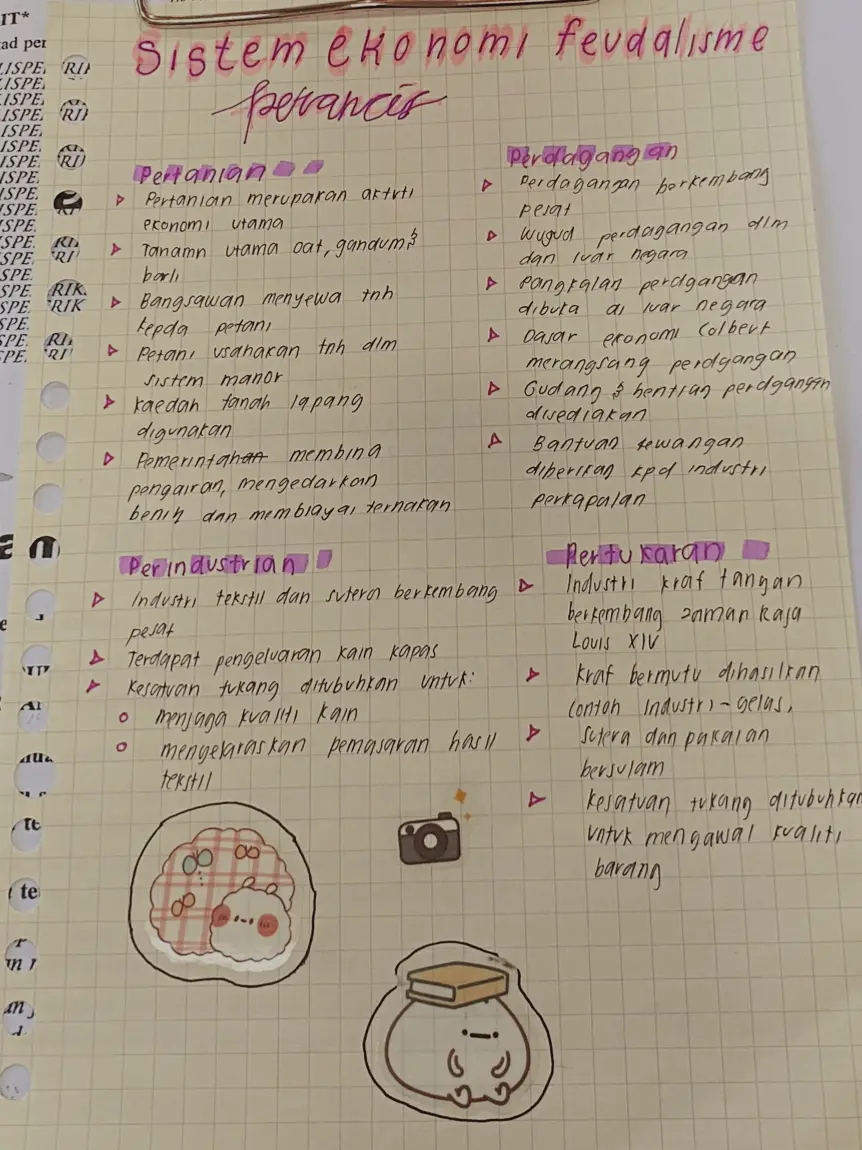 IT*
Sistem ekonomi feudalisme
perancis
Pertanian
Pertanian merupakan aktvti
ekonomi utama
Tanamn utama oat, gandum &
barli
Bangsawan menyewa tnh
kepda petani
Petani usahakan tnh dlm
sistem manor
kaedah tanah lapang
digunakan
Pemerintahan membina
pengairan, mengedarkan
benih dan membiayai ternakan
Perdagangan
Perdagangan berkembang
pesat
Wujud perdagangan dlm
dan luar negara
Pangkalan perdgangan
dibuka di luar negara
Dasar ekonomi Colbert
merangsang perdgangan
Gudang & hentian perdgangan
disediakan
Bantuan kewangan
diberikan kpd industri
perkapalan
Perindustrian
Industri tekstil dan sutera berkembang
pesat
Terdapat pengeluaran kain kapas
Kesatuan tukang ditubuhkan untuk:
menjaga kualiti kain
mengelaraskan pemasaran hasil
tekstil
Pertukaran
Industri kraf tangan
berkembang zaman Raja
Louis XIV
Kraf bermutu dihasilkan
contoh industri - gelas,
sutera dan pakaian
bersulam
Kesatuan tukang ditubuhkan
untuk mengawal kualiti
barang